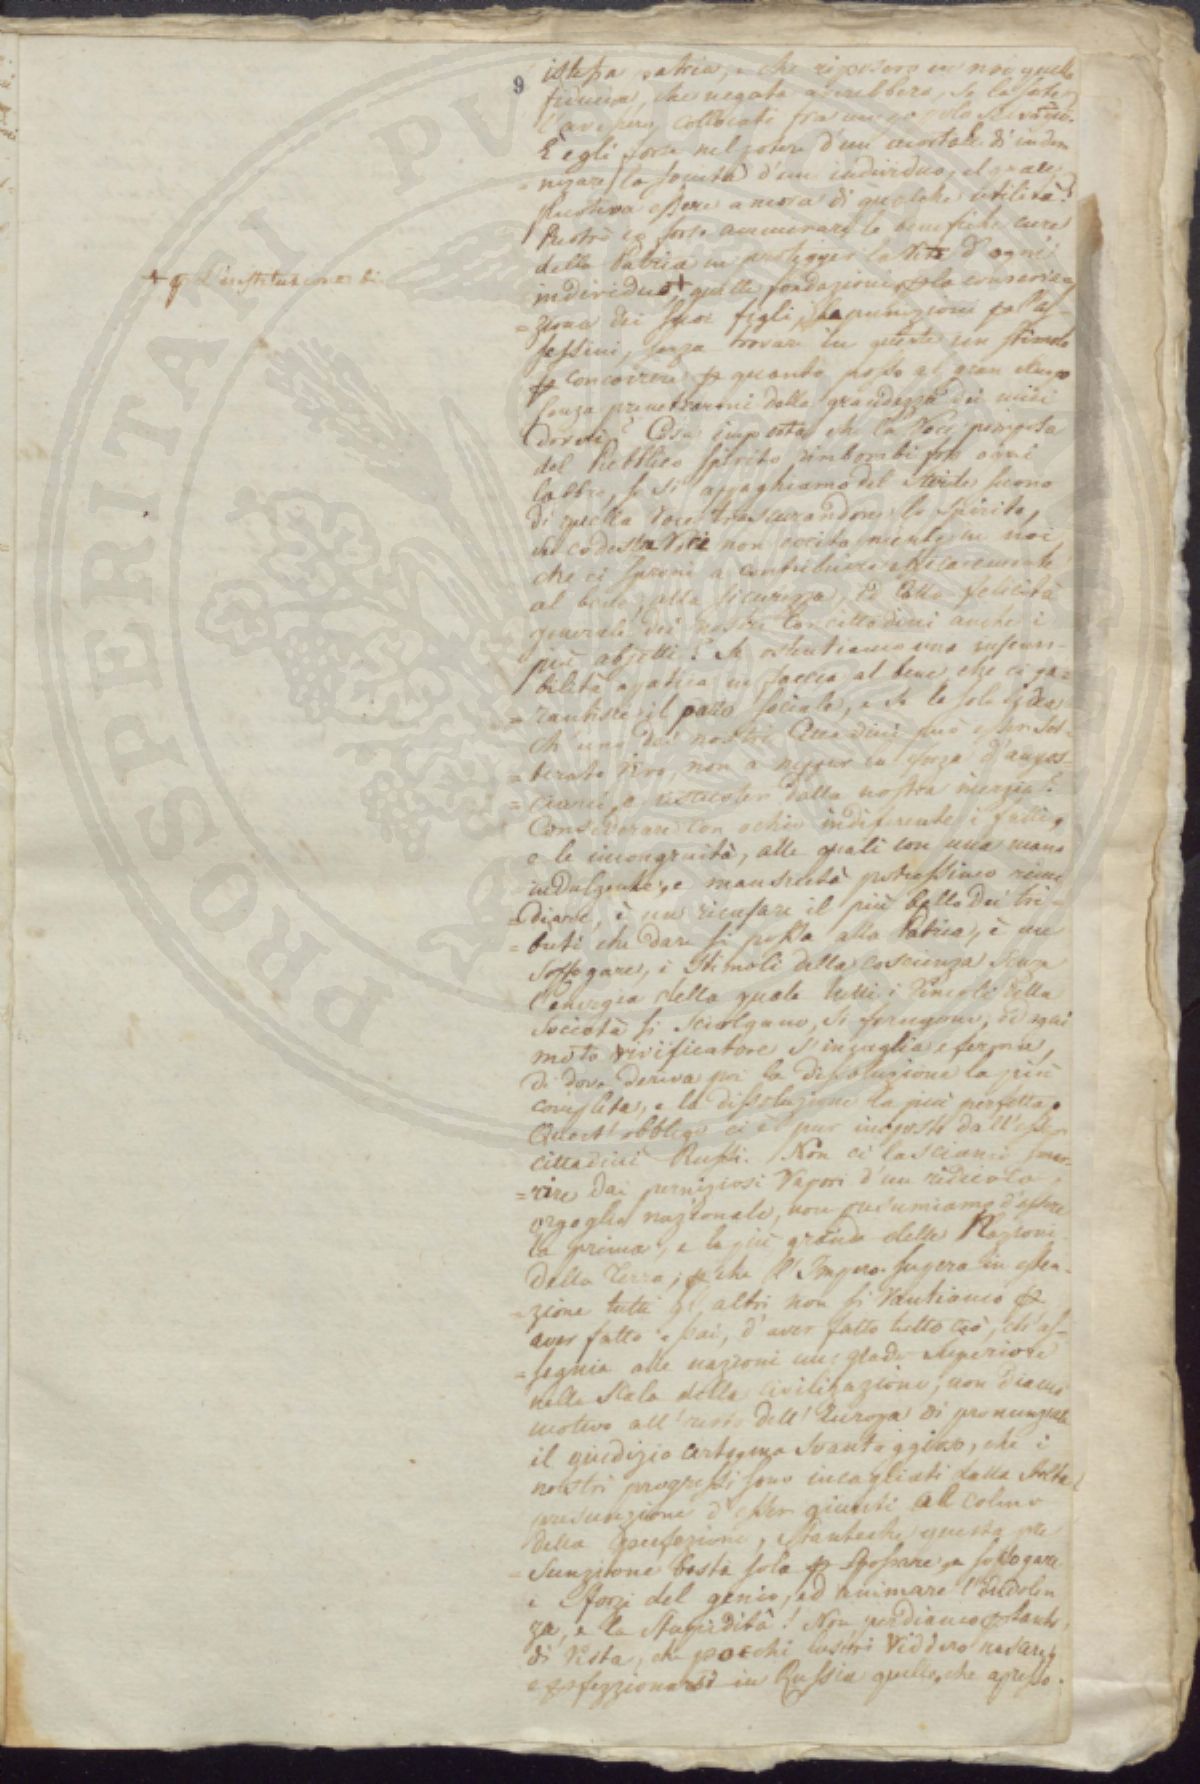 9
istessa patria, e che riposero in noi quella
fiducia, che negata avrebbero, se la sorte
l'avesse collocati fra un popolo
E egli forse nel potere d'un mortale di inden
=nizare la società d'un individuo, il quale
poteva essere ancora di qualche utilità?
Potrò io forse annumerare le benefiche cure
della Patria in protegger la vita d'ogni
individuo + quelle fondazioni la conserva
=zione dei suoi figli, le punizioni As=
sessini, senza trovare in queste un stimolo
concorrere quanto posso al gran
senza penetrarmi della grandezza dei miei
doveri? Cosa importa che la Voce pomposa
del Pubblico Spirito rimbombi fra ogni
labbro, se si appaghiamo del suono
di questa Voce trascurandone lo Spirito,
se codesta Voce non eccita niente in noi,
che ci sproni a contribuire
al bene, alla sicurezza, ed alla felicità
generale dei nostri Concittadini anche i
più abjetti? Se ostentiamo una insensi=
bilità apatica in faccia al bene, che ci ga=
=rantisce il patto sociale, e se la sola idea
ch'uno dei nostri Cittadini può esser
vivo, non a neppur la forza d'angos=
=ciarci, o dalla nostra inerzia?
Considerare con ochio indiferente i fatti,
e le incongruità, alle quali con una mano
indulgente, e mansueta potressimo rime
=diare, è un ricusare il più bello dei tri=
=buti che dare si possa alla Patria, è un
soffogare i stimoli della coscienza senza
l'energia della quale tutti i Vincoli della
Società si sciolgano, si ed ogni
moto vivificatore s'incaglia e ferma,
di dove deriva poi la dissoluzione la più
completa, e la dissoluzione la più perfetta.
Quest'obbligo ci è pur imposto dall'esser
cittadini Russi. Non ci lasciamo
=rire dai perniziosi Vapori d'un ridicolo
orgoglio nazionale, non presumiamo d'essere
la prima, e la più grande delle Nazioni
della Terra; che l'Impero supera in esten=
=zione tutti gl'altri non si Vantiamo
aver fatto assai, d'aver fatto tutto ciò, ch'as=
=segnia alle nazioni un grado superiore
nella Scala della civilizazione; non diamo
motivo all' dell'Europa di pronunziare
il giudizio svantaggioso, che i
nostri progressi sono incagliati dalla stolta
presunzione d'esser giunti al colmo
della perfezione, stanteché questa pre
=sunzione basta sola spossare, e soffogare
i sforzi del genio, ed animare l'indolen
za, e la stupidità! Non perdiamo tanto,
di Vista, che pocchi lustri viddero nascere,
e perfezzionarsi in Russia quello, che apresso
+ L'instituzione di
PROSPERITATI PUBLICAE